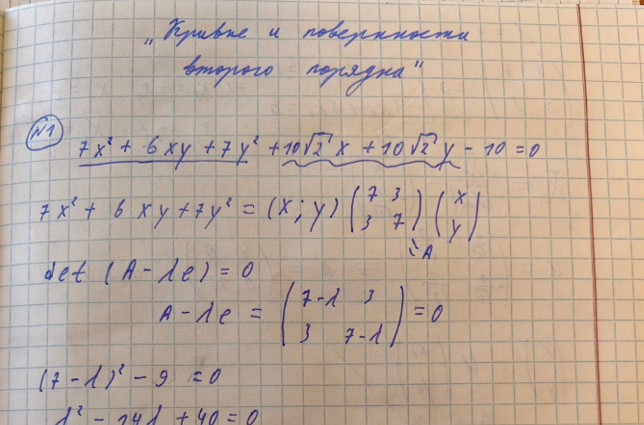 „Кривые и поверхности
второго порядка"
№1
7x² + 6xy + 7y² + 10√2 x + 10√2 y - 10 = 0
7x² + 6xy + 7y² = (x; y) (7 3
3 7) (x
y)
A
det (A - λe) = 0
A - λe = (7-λ 3
3 7-λ) = 0
(7 - λ)² - 9 = 0
λ² - 14λ + 40 = 0